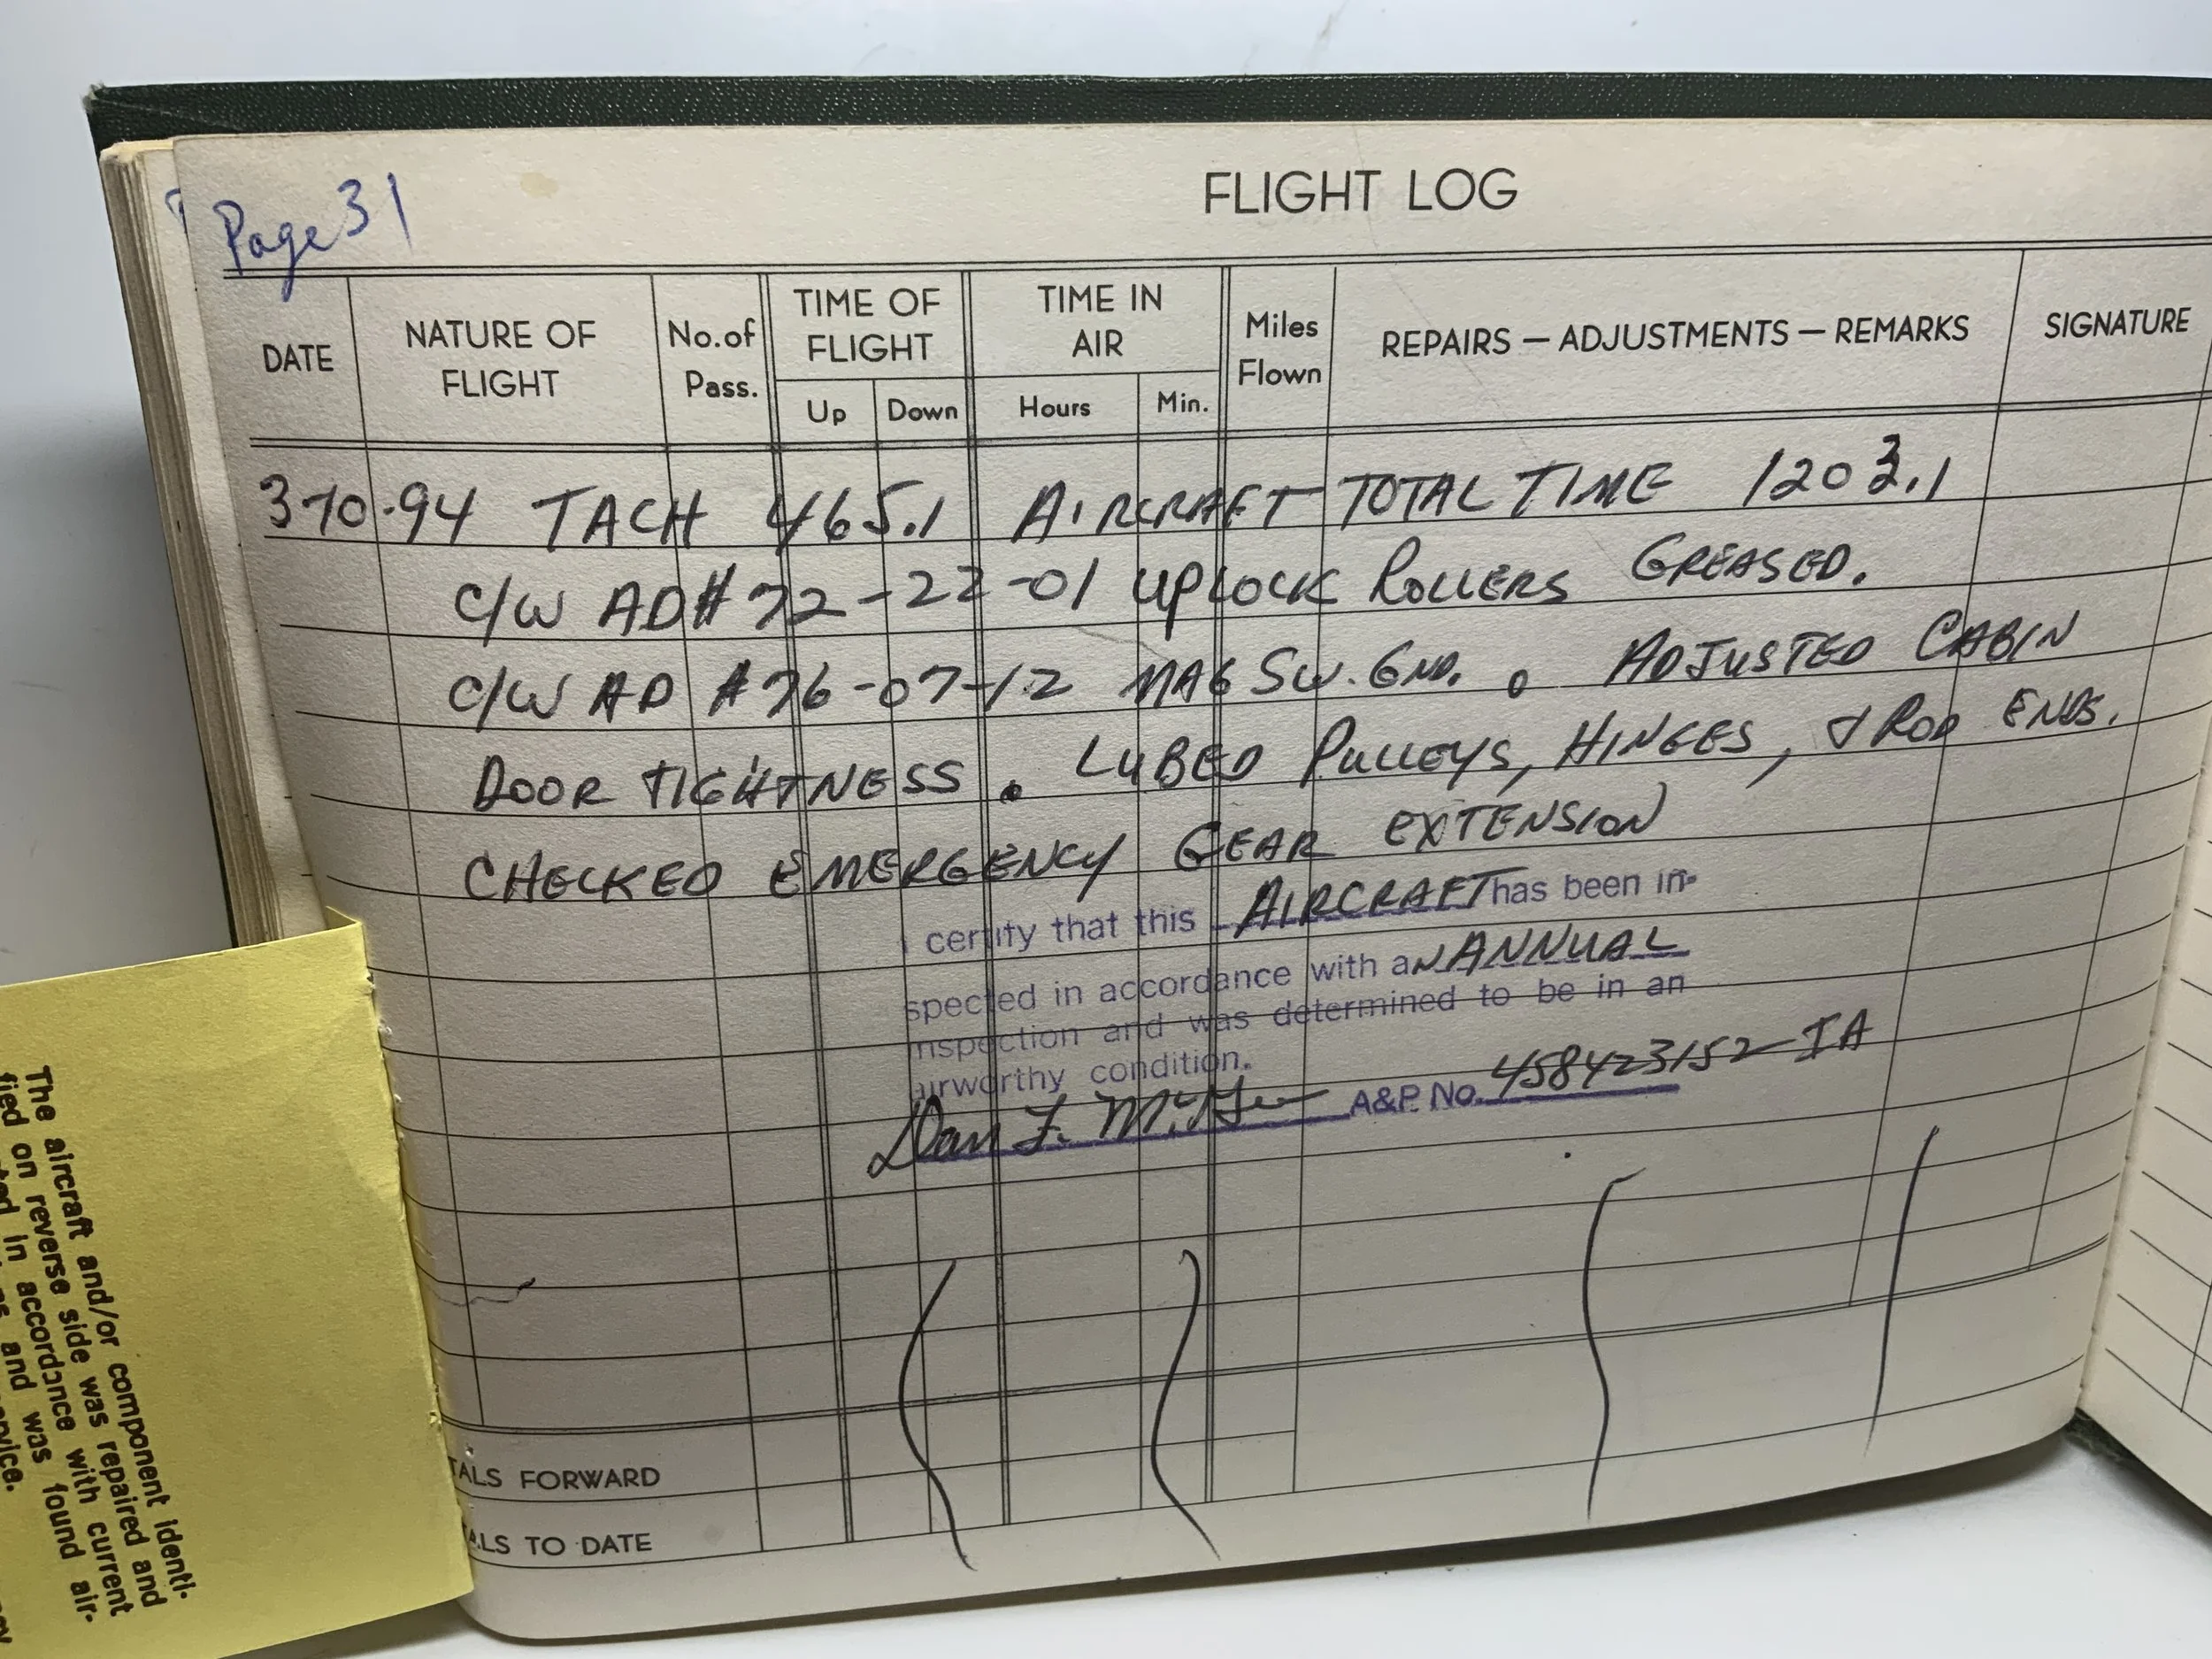 Page 31
FLIGHT LOG
DATE
NATURE OF FLIGHT
No. of Pass.
TIME OF FLIGHT
Up
Down
TIME IN AIR
Hours
Min.
Miles Flown
REPAIRS — ADJUSTMENTS — REMARKS
SIGNATURE
3-10-94 TACH 465.1 AIRCRAFT TOTAL TIME 1203.1
C/W AD# 72-22-01 UPLOCK ROLLERS GREASED.
C/W AD #76-07-12 MAG SW. GND. . ADJUSTED CABIN
DOOR TIGHTNESS . LUBED PULLEYS, HINGES, & ROD ENDS.
CHECKED EMERGENCY GEAR EXTENSION
I certify that this AIRCRAFT has been in-
spected in accordance with aN ANNUAL
inspection and was determined to be in an
airworthy condition.
Dan F. A&P. No. 458423152 IA
TALS FORWARD
ALS TO DATE
The aircraft and/or component identi-
fied on reverse side was repaired and
in accordance with current
and was found air-